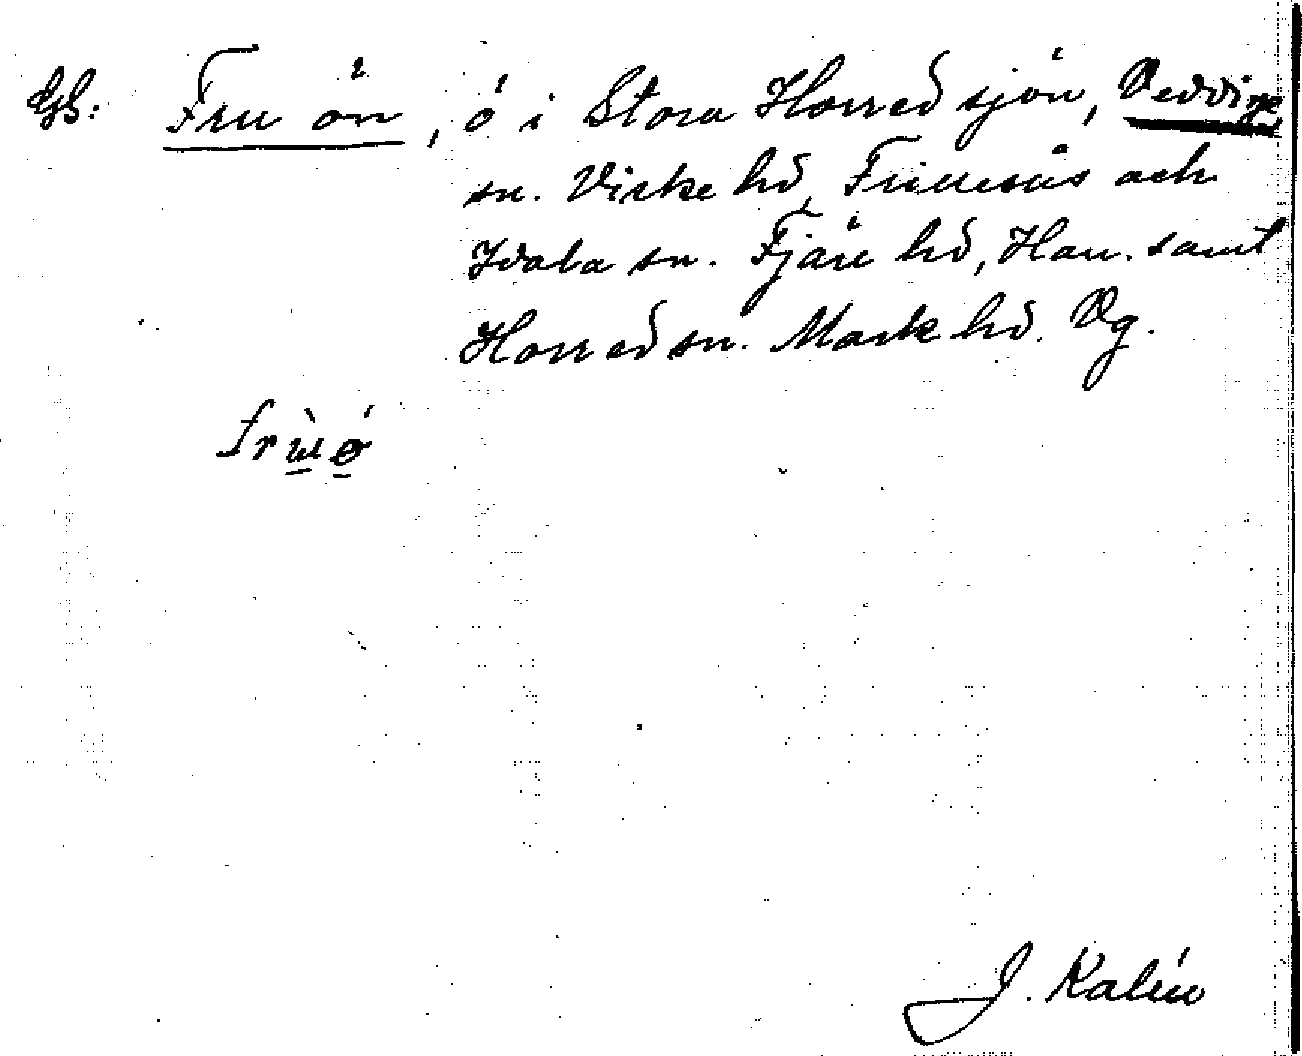 Gb: Fru ön, ö i Stora Horred sjön, Veddige
sn. Viske hd, Frillesås och
Idala sn. Fjäre hd, Hall. samt
Horred sn. Mark hd. Vg.
J. Kalén